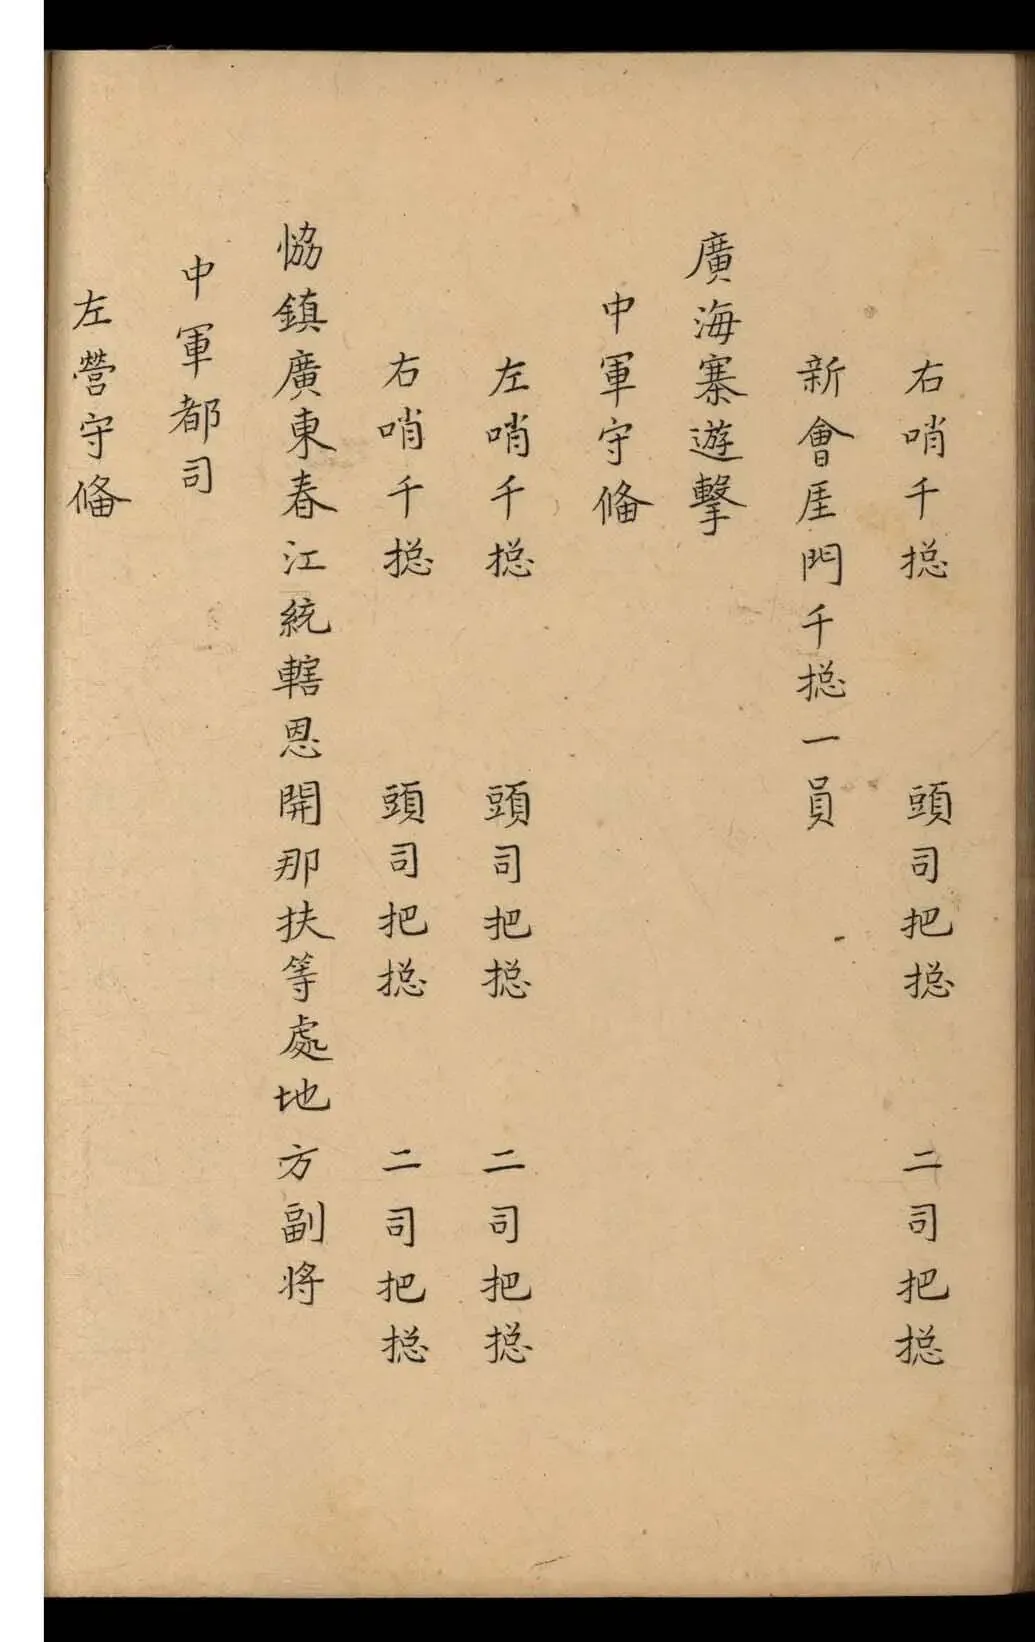 右哨千捴　頭司把捴　二司把捴
新會厓門千捴一員
廣海寨遊擊
中軍守偹
左哨千捴　頭司把捴　二司把捴
右哨千捴　頭司把捴　二司把捴
恊鎮廣東春江統轄恩開那扶等處地方副將
中軍都司
左營守偹